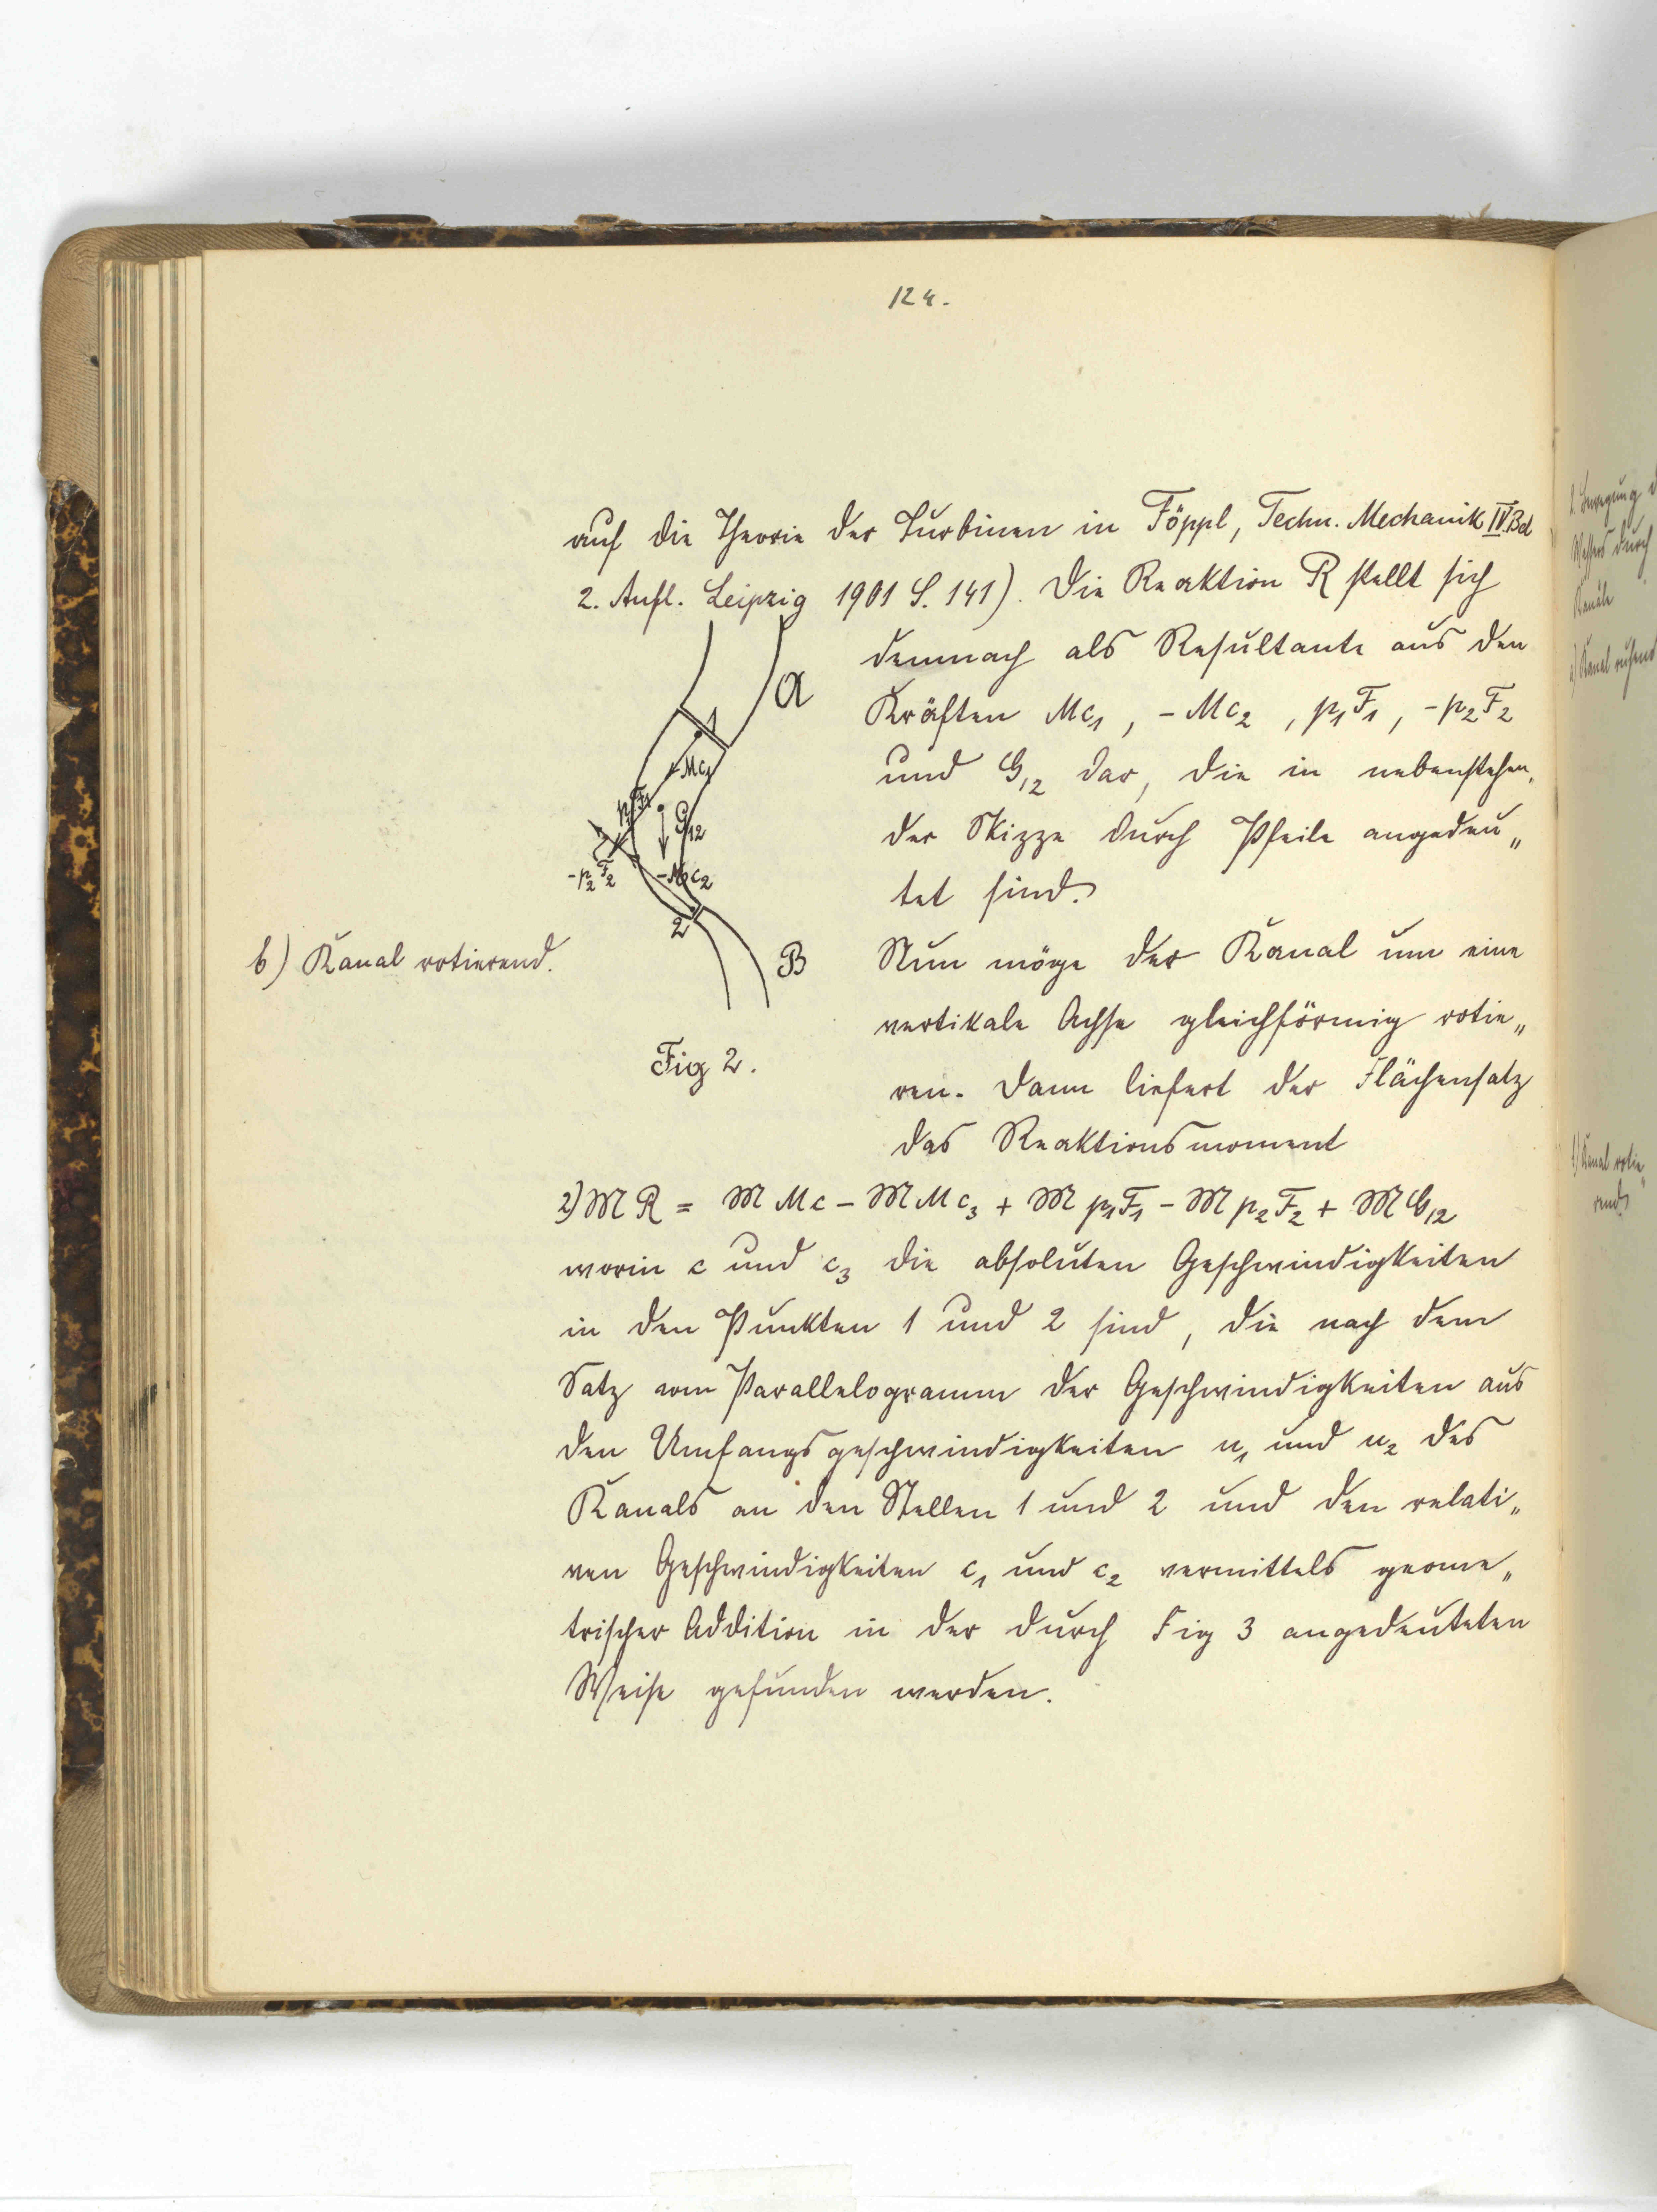 124.
auf die Theorie der Turbinen in Föppl, Techn. Mechanik IV.Bd
2. Aufl. Leipzig 1901 S. 141). Die Reaktion R stellt sich
demnach als Resultante aus den
Kräften Mc₁, -Mc₂, p₁F₁, -p₂F₂
und G₁₂ dar, die in nebenstehen„
der Skizze durch Pfeile angedeu„
tet sind.
A
1
Mc₁
p₁F₁
G₁₂
-p₂F₂
-Mc₂
2
B
Fig 2.
b) Kanal rotierend.
Nun möge der Kanal um eine
vertikale Achse gleichförmig rotie„
ren. Dann liefert der Flächensatz
das Reaktionsmoment
2) M R = M Mc - M Mc₃ + M p₁F₁ - M p₂F₂ + M G₁₂
worin c und c₃ die absoluten Geschwindigkeiten
in den Punkten 1 und 2 sind, die nach dem
Satz vom Parallelogramm der Geschwindigkeiten aus
den Umfangsgeschwindigkeiten u₁ und u₂ des
Kanals an den Stellen 1 und 2 und den relati„
ven Geschwindigkeiten c₁ und c₂ vermittels geome„
trischer Addition in der durch Fig 3 angedeuteten
Weise gefunden werden.
2. Bewegung d
Wassers durch
Kanäle
a) Kanal ruhend
b) Kanal rotie„
rend